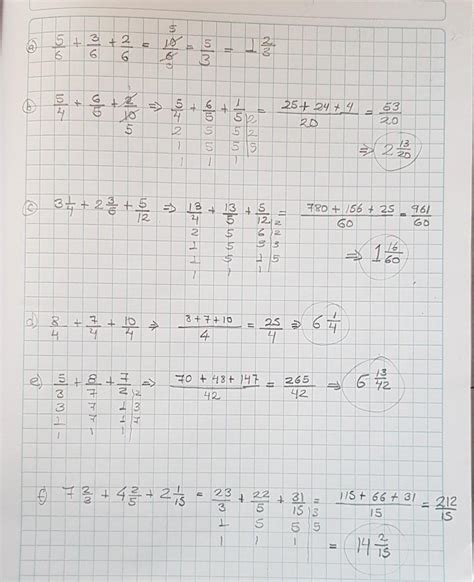 a) 5/6 + 3/6 + 2/6 = 10/6 = 5/3 = 1 2/3
5
3
b) 5/4 + 6/5 + 2/10 ⇒ 5/4 + 6/5 + 1/5 = 25 + 24 + 4/20 = 53/20
1
5
2 5 5 | 2
1 5 5 | 5
1 1 1
⇒ 2 13/20
c) 3 1/4 + 2 3/5 + 5/12 ⇒ 13/4 + 13/5 + 5/12 = 780 + 156 + 25/60 = 961/60
2 5 6 | 2
1 5 3 | 3
1 5 1 | 5
1 1 1
⇒ 1 16/60
d) 8/4 + 7/4 + 10/4 ⇒ 8 + 7 + 10/4 = 25/4 ⇒ 6 1/4
e) 5/3 + 8/7 + 7/2 ⇒ 70 + 48 + 147/42 = 265/42 ⇒ 6 13/42
3 7 1 | 3
1 7 1 | 7
1 1 1
f) 7 2/3 + 4 2/5 + 2 1/15 = 23/3 + 22/5 + 31/15 = 115 + 66 + 31/15 = 212/15
1 5 5 | 5
1 1 1
= 14 2/15